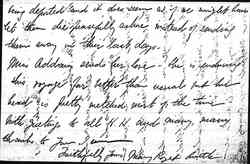 being deported and it does seem as if we might have
let them die peacefully ashore instead of sending
them away in their last days.
Miss Addams sends her love. She is enduring
this voyage far better than usual but her
head is pretty wretched most of the time
With greeting to all of H. and many, many
thanks to you I am
Faithfully yours